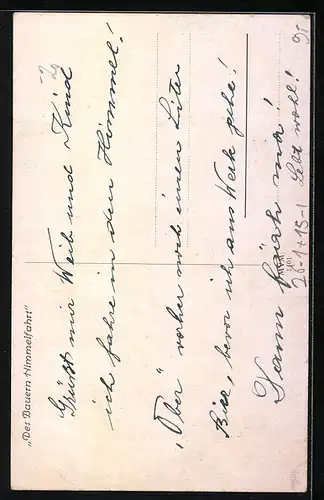 „Des Bauern Himmelfahrt“
Grüsst mir Weib und Kind
ich fahre in den Himmel!
„Ober“ vorher noch einen Liter
Bier, bevor ich ans Werk gehe!
Dann
Lebt wohl!